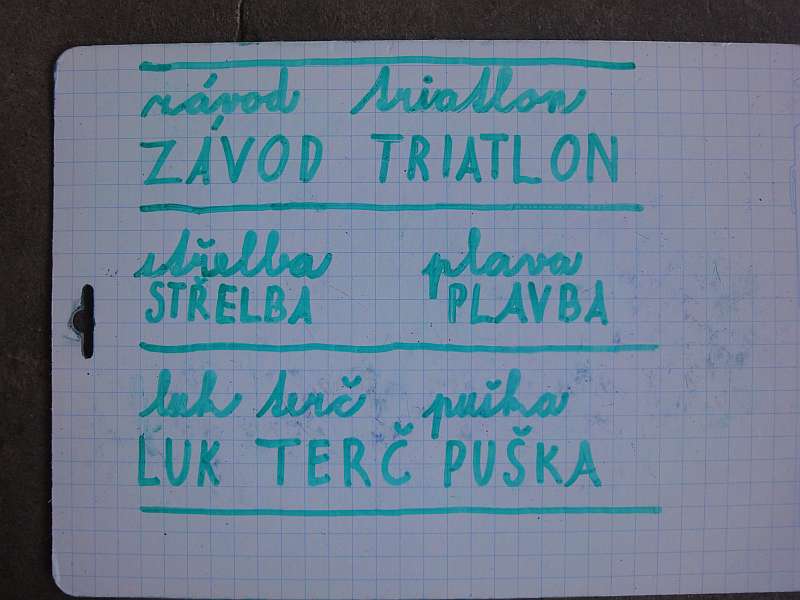 závod triatlon
ZÁVOD TRIATLON
střelba plava
STŘELBA PLAVBA
luk terč puška
LUK TERČ PUŠKA